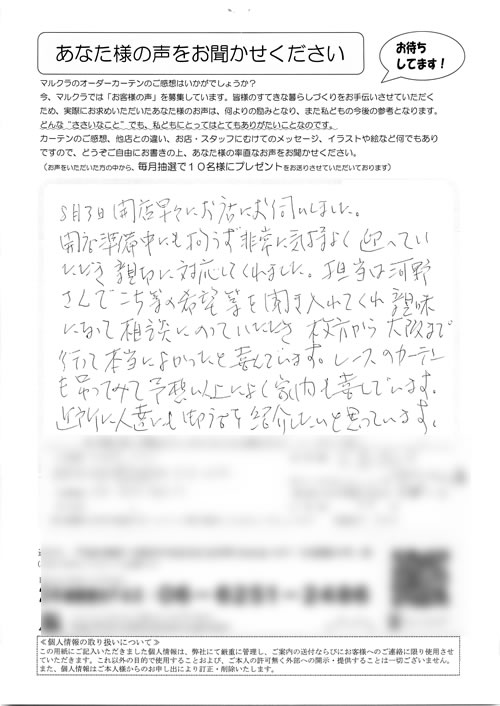 あなた様の声をお聞かせください
お待ち
してます!
マルクラのオーダーカーテンのご感想はいかがでしょうか?
今、マルクラでは「お客様の声」を募集しています。皆様のすてきな暮らしづくりをお手伝いさせていただく
ため、実際にお求めいただいたあなた様のお声は、何よりの励みとなり、また私どもの今後の参考となります。
どんな“ささいなこと”でも、私どもにとってはとてもありがたいことなのです。
カーテンのご感想、他店との違い、お店・スタッフにむけてのメッセージ、イラストや絵など何でもあり
ですので、どうぞご自由にお書きの上、あなた様の率直なお声をお聞かせください。
(お声をいただいた方の中から、毎月抽選で10名様にプレゼントをお送りさせていただいております)
5月3日開店早々にお店にお伺いしました。
開店準備中にも拘らず非常に気持よく迎えてい
ただき親切に対応してくれました。担当は河野
さんでこち等の希望等を聞き入れてくれ親味
になって相談にのっていただき枚方から大阪まで
行って本当によかったと喜んでいます。レースのカーテン
も吊ってみて予想以上によく家内も喜しています。
近所に人達にも御店を紹介したいと思っています。
06-6251-2486
≪個人情報の取り扱いについて≫
この用紙にご記入いただきました個人情報は、弊社にて厳重に管理し、ご案内の送付ならびにお客様へのご連絡に限り使用させ
ていただきます。これ以外の目的で使用することおよび、ご本人の許可無く外部への開示・提供することは一切ございません。
また、個人情報はご本人様からのお申し出により訂正・削除いたします。